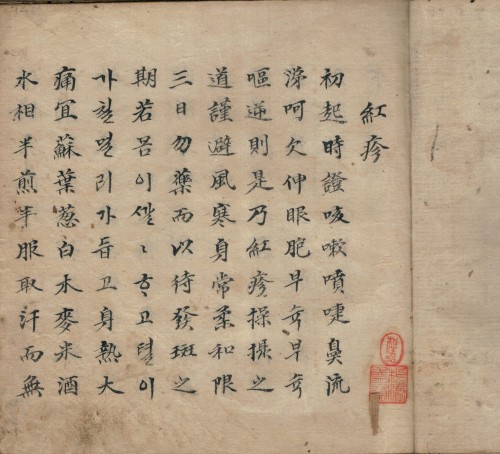 紅疹
初起時證咳嗽噴嚏鼻流
涕呵欠伸眼胞
嘔逆則是乃紅疹操攝之
道謹避風寒身常柔和限
三日勿藥而以待發斑之
期若몸이 고털이
가 가 고身熱大
痛宜蘇葉葱白木麥米酒
水相半煎半服取汗而無